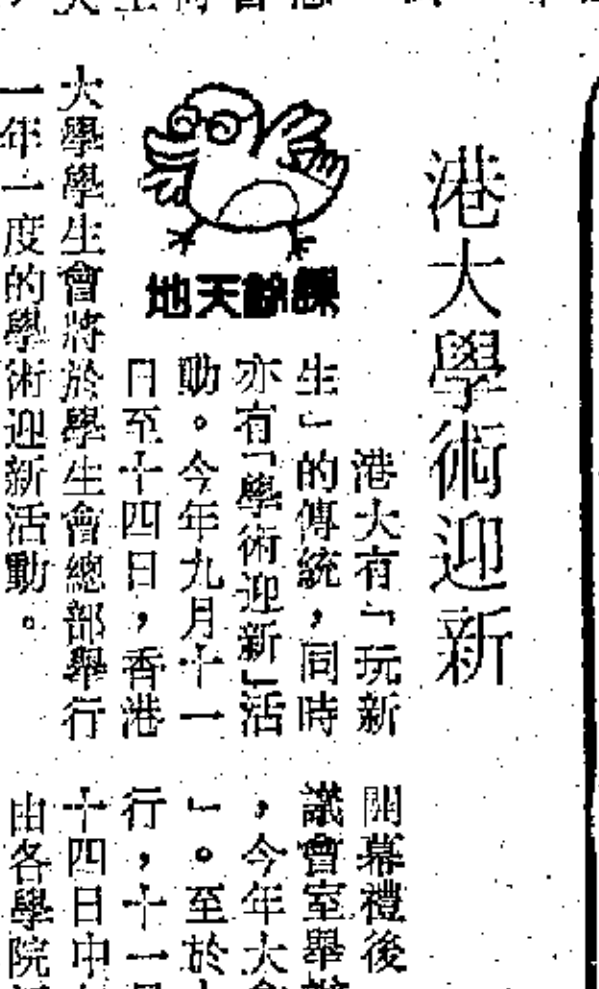 港大學術迎新
課餘天地
港大有「玩新
生」的傳統，同時
亦有「學術迎新」活
動。今年九月十一
日至十四日，香港
大學學生會將於學生會總部舉行
一年一度的學術迎新活動。
開幕禮後
議會室舉
，今年大
」。至於
行，十一
十四日中
由各學院